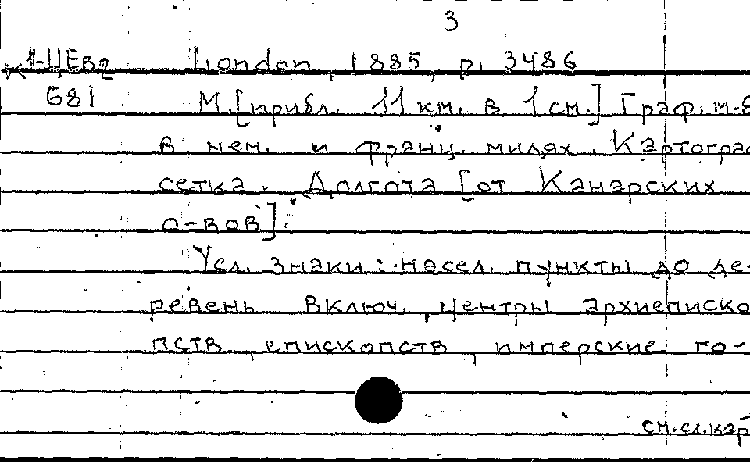 3
К1-ЦЕв2 London, 1885, p. 3486
681 М [прибл. 11 км. в 1 см.] Граф. м-б
в нем. и франц. милях. Картограф
сетка. Долгота [от Канарских
о-вов].
Усл. знаки: насел. пункты до де-
ревень включ., центры архиеписко
пств, епископств, имперские го-
см.сл.кар